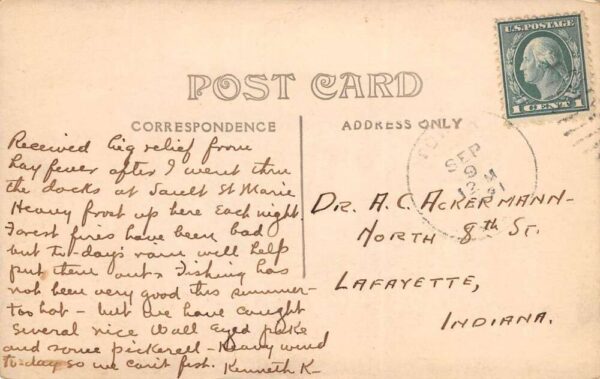 U.S. POSTAGE
1 CENT 1
POST CARD
CORRESPONDENCE
ADDRESS ONLY
SEP
9
12 M
Received big relief from
hay fever after I went thru
the docks at Sault St Marie
Heavy frost up here Each night.
Forest fires have been bad
but to-day's rain will help
put them out. Fishing has
not been very good this summer-
too hot - but we have caught
several nice Wall Eyed pike
and some pickerell - Heavy wind
to-day so we can't fish. Kenneth K-
DR. A. C. ACKERMANN-
NORTH 8th ST.
LAFAYETTE,
INDIANA.